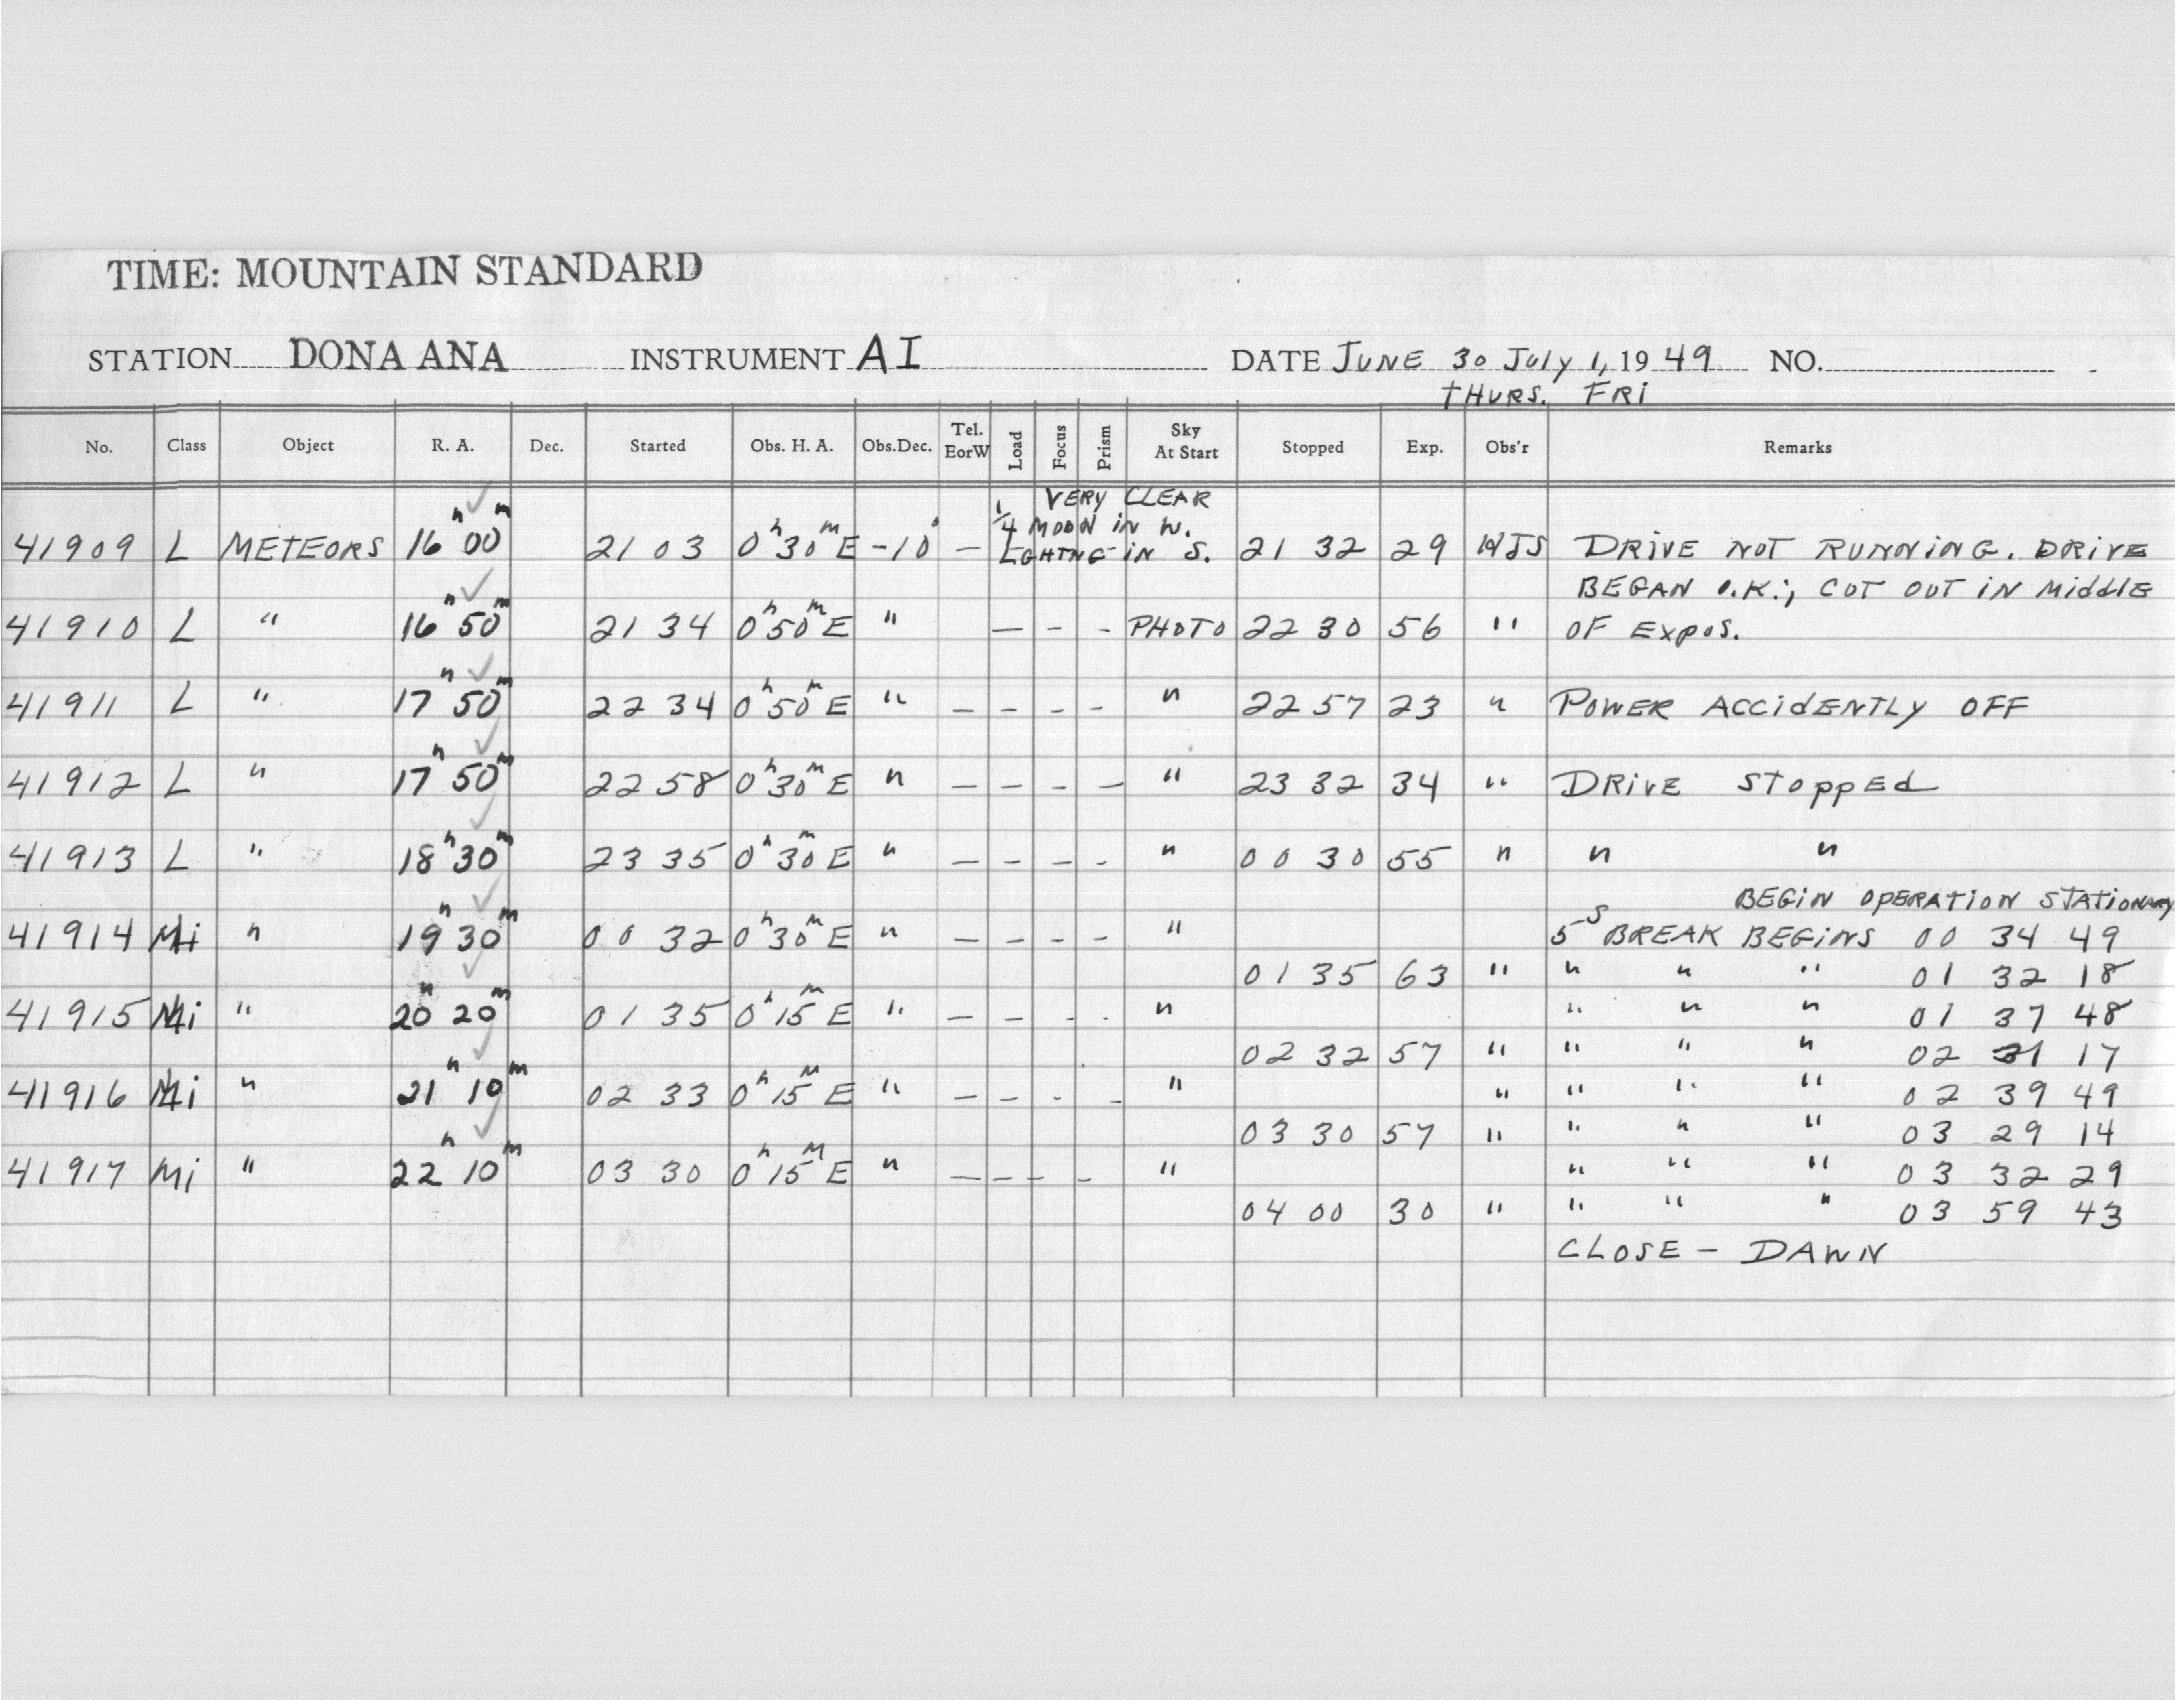 TIME: MOUNTAIN STANDARD
STATION DONA ANA INSTRUMENT AI DATE JUNE 30 JULY 1, 1949 NO.
THURS. FRI
No. Class Object R. A. Dec. Started Obs. H. A. Obs.Dec. Tel. EorW Load Focus Prism Sky At Start Stopped Exp. Obs'r Remarks
VERY CLEAR
1/4 MOON IN W.
41909 L METEORS 16h 00m 21 03 0h 30m E -10° — LGHTNG IN S. 21 32 29 WJS DRIVE NOT RUNNING. DRIVE
BEGAN O.K.; CUT OUT IN MIDDLE
41910 L " 16h 50m 21 34 0h 50m E " — - - PHOTO 22 30 56 " OF EXPOS.
41911 L " 17h 50m 22 34 0h 50m E " — - - - " 22 57 23 " POWER ACCIDENTLY OFF
41912 L " 17h 50m 22 58 0h 30m E " — - - — " 23 32 34 " DRIVE STOPPED
41913 L " 18h 30m 23 35 0h 30m E " — - - - " 00 30 55 " " "
BEGIN OPERATION STATIONARY
41914 Mi " 19h 30m 00 32 0h 30m E " — - - - " 5s BREAK BEGINS 00 34 49
01 35 63 " " " " 01 32 18
41915 Mi " 20h 20m 01 35 0h 15m E " — - - - " " " " 01 37 48
02 32 57 " " " " 02 31 17
41916 Mi " 21h 10m 02 33 0h 15m E " — - - - " " " " " 02 39 49
03 30 57 " " " " 03 29 14
41917 Mi " 22h 10m 03 30 0h 15m E " — - - - " " " " 03 32 29
04 00 30 " " " " 03 59 43
CLOSE - DAWN